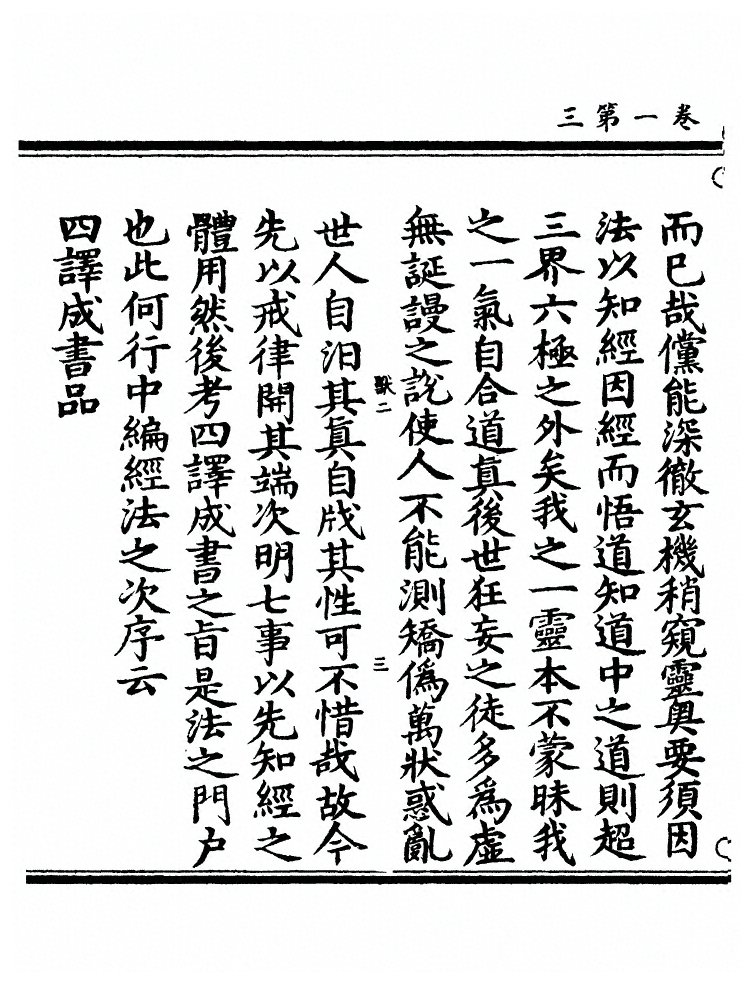 三第一卷
而已哉儻能深徹玄機稍窺靈奧要須因
法以知經因經而悟道知道中之道則超
三界六極之外矣我之一靈本不蒙昧我
之一氣自合道真後世狂妄之徒多為虛
無誕謾之說使人不能測矯偽萬狀惑亂
獸二
三
世人自汩其真自戕其性可不惜哉故今
先以戒律開其端次明七事以先知經之
體用然後考四譯成書之旨是法之門户
也此何行中編經法之次序云
四譯成書品